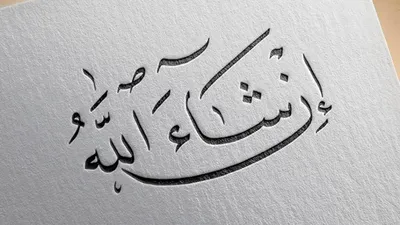 إِنْشَاءَ اللَّهُ